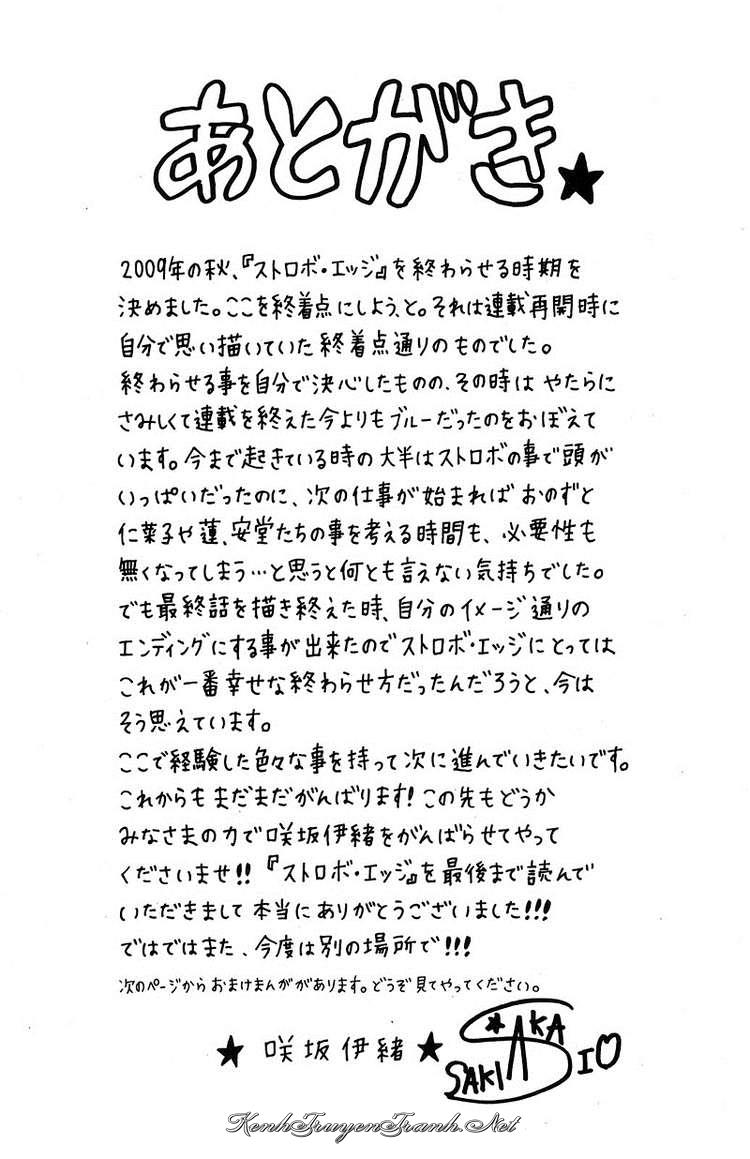 あとがき★
2009年の秋、『ストロボ・エッジ』を終わらせる時期を
決めました。ここを終着点にしよう、と。それは連載再開時に
自分で思い描いていた終着点通りのものでした。
終わらせる事を自分で決心したものの、その時は やたらに
さみしくて連載を終えた今よりもブルーだったのをおぼえて
います。今まで起きている時の大半はストロボの事で頭が
いっぱいだったのに、次の仕事が始まれば おのずと
仁菜子や蓮、安堂たちの事を考える時間も、必要性も
無くなってしまう…と思うと何とも言えない気持ちでした。
でも最終話を描き終えた時、自分のイメージ通りの
エンディングにする事が出来たのでストロボ・エッジにとっては
これが一番幸せな終わらせ方だったんだろうと、今は
そう思えています。
ここで経験した色々な事を持って次に進んでいきたいです。
これからもまだまだがんばります!この先もどうか
みなさまの力で咲坂伊緒をがんばらせてやって
くださいませ!!『ストロボ・エッジ』を最後まで読んで
いただきまして本当にありがとうございました!!!
ではではまた、今度は別の場所で!!!
次のページからおまけまんががあります。どうぞ見てやってください。
★ 咲坂伊緒 ★ SAKISAKA IO
KenhTruyenTranh.Net